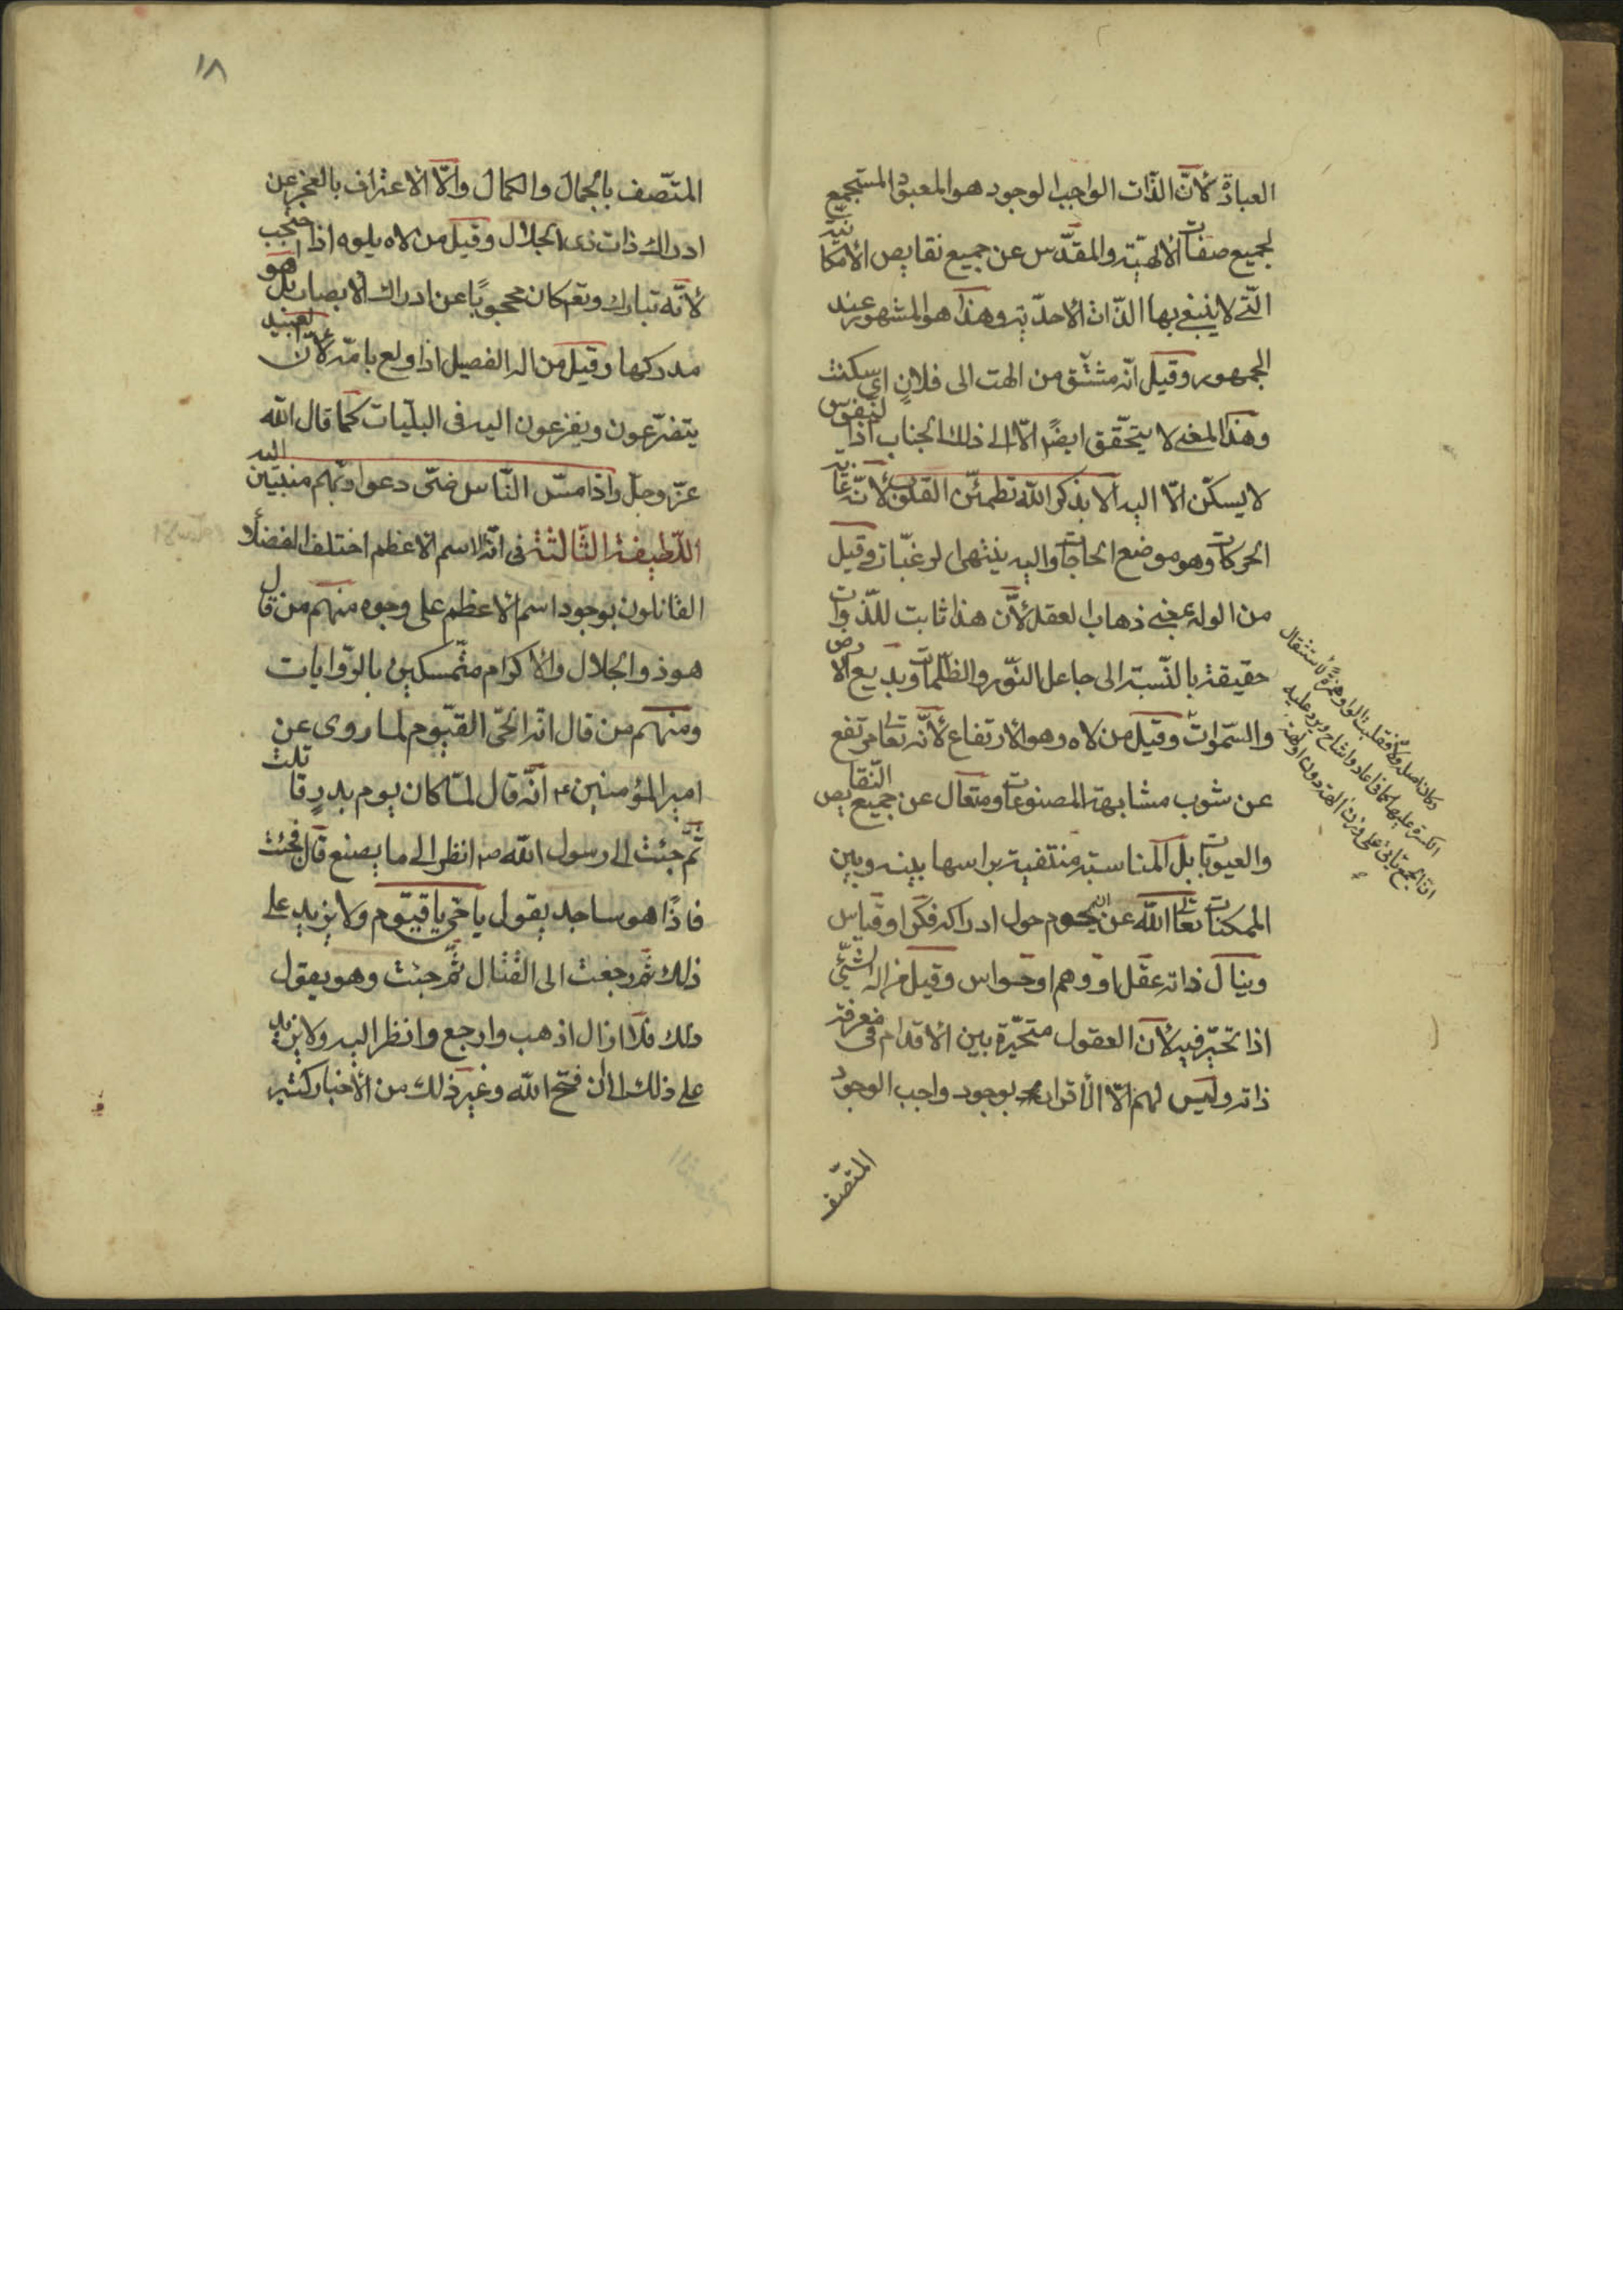 العبادة لأنّ الذّات الواجب الوجود هو المعبود المستجمع
لجميع صفات الألهيّة والمقدّس عن جميع نقايص الأمكانيّة
الّتى لا ينبغى بها الذّات الأحدّية وهذا هو المشهور عند
الجمهور وقيل انّه مشتّق من الهت الى فلان اى سكنت
وهذا المعنى لا يتحّقق ايضًا الّا الى ذلك الجناب اذ النّفوس
لا يسكن الّا اليه ألا بذكر الله تطمئنّ القلوب لأنّه غاية
الحركات وهو موضع الحاجات واليه ينتهى الرغبّات وقيل
من الوله بمعنى ذهاب العقل لأنّ هذا ثابت للذّوات
حقيقة بالنّسبة الى جاعل النّور والظّلمات وبديع الارض
والسّموات وقيل من لاه وهو الأرتفاع لأنّه تعالى مرتفع
عن شوب مشابهة المصنوعات ومتعال عن جميع النّقايص
والعيوبات بل المناسبة منتفية براسها بينه وبين
الممكنات تعالى الله عن ان يحوم حول ادراكه فكر او قياس
وينال ذاته عقل او وهم او حواس وقيل من اله الشّئ
اذا تحيّر فيه لأن العقول متحيّرة بين الاقدام فى معرفة
ذاته وليس لهم الّا الأقرار بوجود واجب الوجود
المتّصف
وكان اصله ولاه فقلبت الواو همزةً لاستثقال
الكسرة عليها كما فى اعاد واشاح ويرد عليه
انّ الجمع يأتى على وزن الهة دون اولهة
١٨
المتّصف بالجمال والكمال والّا الاعتراف بالعجز عن
ادراك ذات ذى الجلال وقيل من لاه يلوه اذا احتجب
لأنّه تبارك وتعم كان محجوبًا عن ادراك الابصار بل هو
مدركها وقيل من اله الفصيل اذا ولع بامّه لأنّ العبيد
يتضرّعون ويفزعون اليه فى البليّات كما قال الله
عزّ وجلّ واذا مسّ النّاس ضرّ دعوا ربّهم منيبين اليه
اللّطيفة الثّالثة فى انّه الاسم الاعظم اختلف الفضلأ
القائلون بوجود اسم الاعظم على وجوه منهم من قال
هو ذو الجلال والأكرام متّمسكين بالرّوايات
ومنهم من قال انّه الحّى القيّوم لما روى عن
امير المؤمنين ع انّه قال لمّا كان يوم بدرٍ قاتلت
ثمّ جئت الى رسول الله ص انظر الى ما يصنع قال فجئت
فاذًا هو ساجد يقول يا حّى يا قيّوم ولا يزيد على
ذلك ثمّ رجعت الى القتال ثمّ جئت وهو يقول
ذلك فلا ازال اذهب وارجع وانظر اليه ولا يزيد
على ذلك الى ان فتح الله وغير ذلك من الأخبار كثير